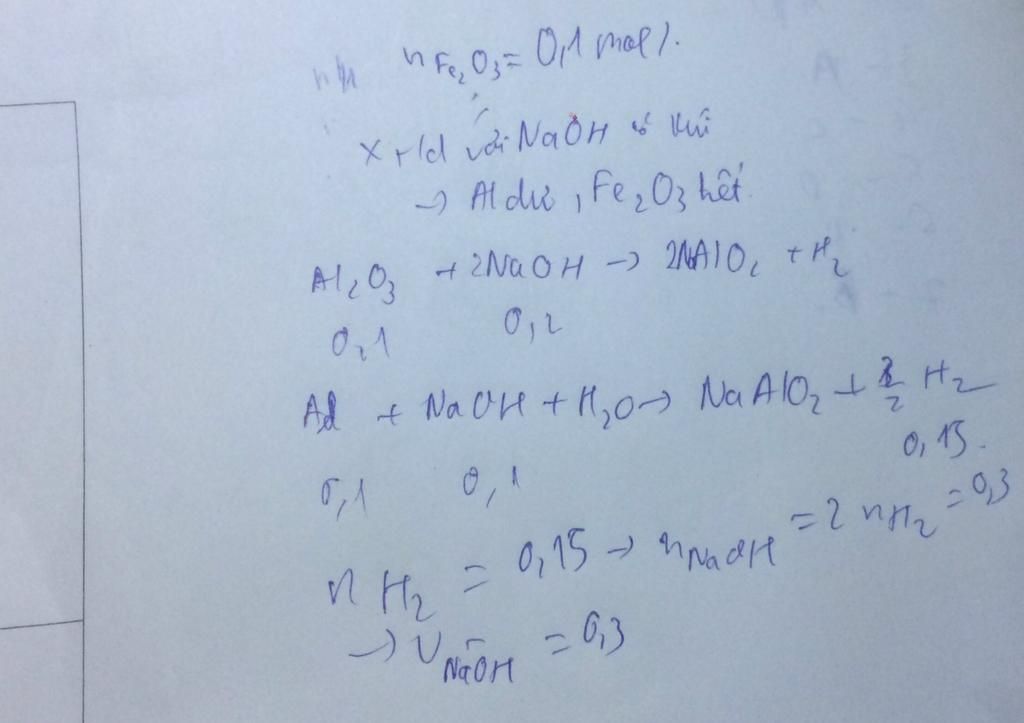 nFe₂O₃ = 0,1 mol).
X t/d với NaOH có khí
→ Al dư, Fe₂O₃ hết.
Al₂O₃ + 2NaOH → 2NaAlO₂ + H₂
0,1 0,2
Al + NaOH + H₂O → NaAlO₂ + 3/2 H₂
0,1 0,1 0,15.
nH₂ = 0,15 → nNaOH = 2 nH₂ = 0,3
→ VNaOH = 0,3